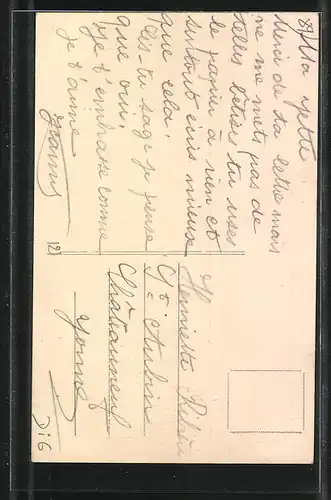 Ma yette
Merci de ta lettre mais
ne me mets pas de
telles bêtises tu uses
le papier à rien et
surtout écris mieux
que cela.
Es-tu sage je pense
que oui.
Je t'embrasse comme
je t'aime
12)
Henriette
St Aubin
Châteauneuf
Yonne
D i G